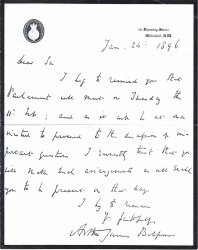 10, Downing Street,
Whitehall, S.W.
Jan. 24th 1896
Dear Sir
I beg to remind you that
Parliament will meet on Tuesday the
11th Feb; and as it will be at once
invited to proceed to the discussion of
important questions I earnestly trust that you
will make such arrangements as will enable
you to be present on that day.
I beg to remain
Yr faithfully
Arthur James Balfour